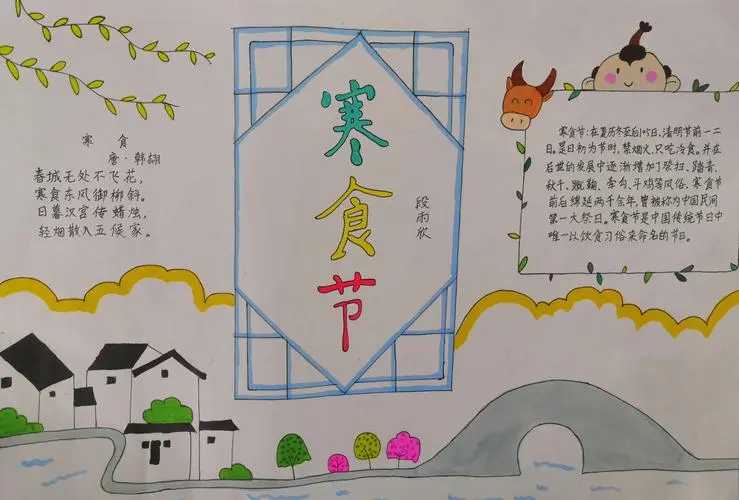 寒 食
唐·韩翃
春城无处不飞花,
寒食东风御柳斜。
日暮汉宫传蜡烛,
轻烟散入五候家。
寒食节
段雨欣
寒食节:在夏历冬至后105日,清明节前一二
日。是日初为节时,禁烟火,只吃冷食。并在
后世的发展中逐渐增加了祭扫、踏青、
秋千、蹴鞠、牵勾、斗鸡等风俗,寒食节
前后绵延两千余年,曾被称为中国民间
第一大祭日。寒食节是中国传统节日中
唯一以饮食习俗来命名的节日。